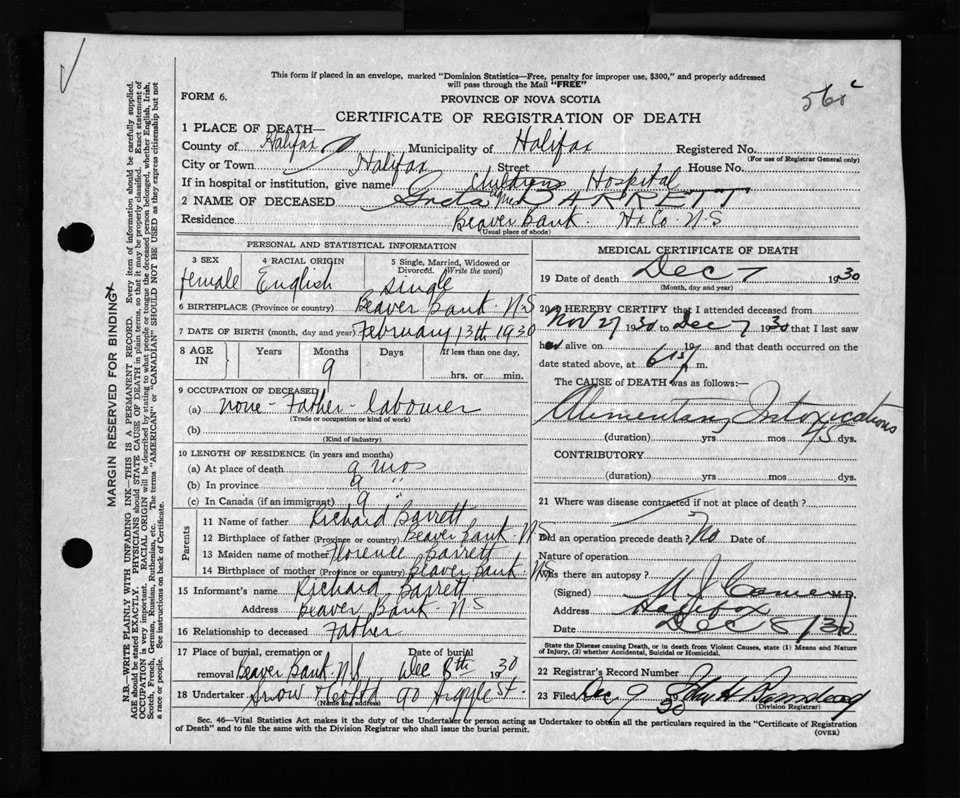 This form if placed in an envelope, marked "Dominion Statistics—Free, penalty for improper use, $300," and properly addressed
will pass through the Mail "FREE"
FORM 6.
PROVINCE OF NOVA SCOTIA
CERTIFICATE OF REGISTRATION OF DEATH
1 PLACE OF DEATH—
County of Halifax Municipality of Halifax Registered No.
(For use of Registrar General only)
City or Town Halifax Street House No.
If in hospital or institution, give name Childrens Hospital
2 NAME OF DECEASED Greta BARRETT
Residence Beaver Bank. Hx Co. N.S
(Usual place of abode)
PERSONAL AND STATISTICAL INFORMATION
3 SEX female
4 RACIAL ORIGIN English
5 Single, Married, Widowed or Divorced. (Write the word) Single
6 BIRTHPLACE (Province or country) Beaver Bank. N.S
7 DATE OF BIRTH (month, day and year) February 13th 1930
8 AGE IN Years Months 9 Days If less than one day, hrs. or min.
9 OCCUPATION OF DECEASED
(a) none - Father - labourer
(Trade or occupation or kind of work)
(b)
(Kind of industry)
10 LENGTH OF RESIDENCE (in years and months)
(a) At place of death 9 mos
(b) In province 9 "
(c) In Canada (if an immigrant) 9 "
Parents
11 Name of father Richard Barrett
12 Birthplace of father (Province or country) Beaver Bank. N.S
13 Maiden name of mother Florence Barrett
14 Birthplace of mother (Province or country) Beaver Bank. N.S
15 Informant's name Richard Barrett
Address Beaver Bank. N S
16 Relationship to deceased Father
17 Place of burial, cremation or removal Beaver Bank. N.S Date of burial Dec 8th 1930
18 Undertaker Snow & Co Ltd 90 Argyle St.
(Name and address)
MEDICAL CERTIFICATE OF DEATH
19 Date of death Dec 7 1930
(Month, day and year)
20 I HEREBY CERTIFY that I attended deceased from
Nov 27 1930 to Dec 7 1930 that I last saw
h alive on 19 and that death occurred on the
date stated above, at m.
The CAUSE OF DEATH was as follows:—
Alimentary Intoxications
(duration) yrs mos dys.
CONTRIBUTORY
(duration) yrs mos dys.
21 Where was disease contracted if not at place of death?
Did an operation precede death? No Date of
Nature of operation
Was there an autopsy?
(Signed) M.D.
Address Halifax
Date Dec 8/30
State the Disease causing Death, or in death from Violent Causes, state (1) Means and Nature
of Injury, (2) whether Accidental, Suicidal or Homicidal.
22 Registrar's Record Number
23 Filed Dec 9 30
(Division Registrar)
Sec. 46—Vital Statistics Act makes it the duty of the Undertaker or person acting as Undertaker to obtain all the particulars required in the "Certificate of Registration
of Death" and to file the same with the Division Registrar who shall issue the burial permit.
(OVER)
MARGIN RESERVED FOR BINDING
N.B.—WRITE PLAINLY WITH UNFADING INK—THIS IS A PERMANENT RECORD. Every item of information should be carefully supplied.
AGE should be stated EXACTLY. PHYSICIANS should STATE CAUSE OF DEATH in plain terms, so that it may be properly classified. Exact statement of
OCCUPATION is very important. RACIAL ORIGIN will be described by stating to what people or tongue the deceased person belonged, whether English, Irish,
Scotch, French, German, Russian, Ruthenian, etc. The terms "AMERICAN" or "CANADIAN" SHOULD NOT BE USED as they express citizenship but not
a race or people. See instructions on back of Certificate.